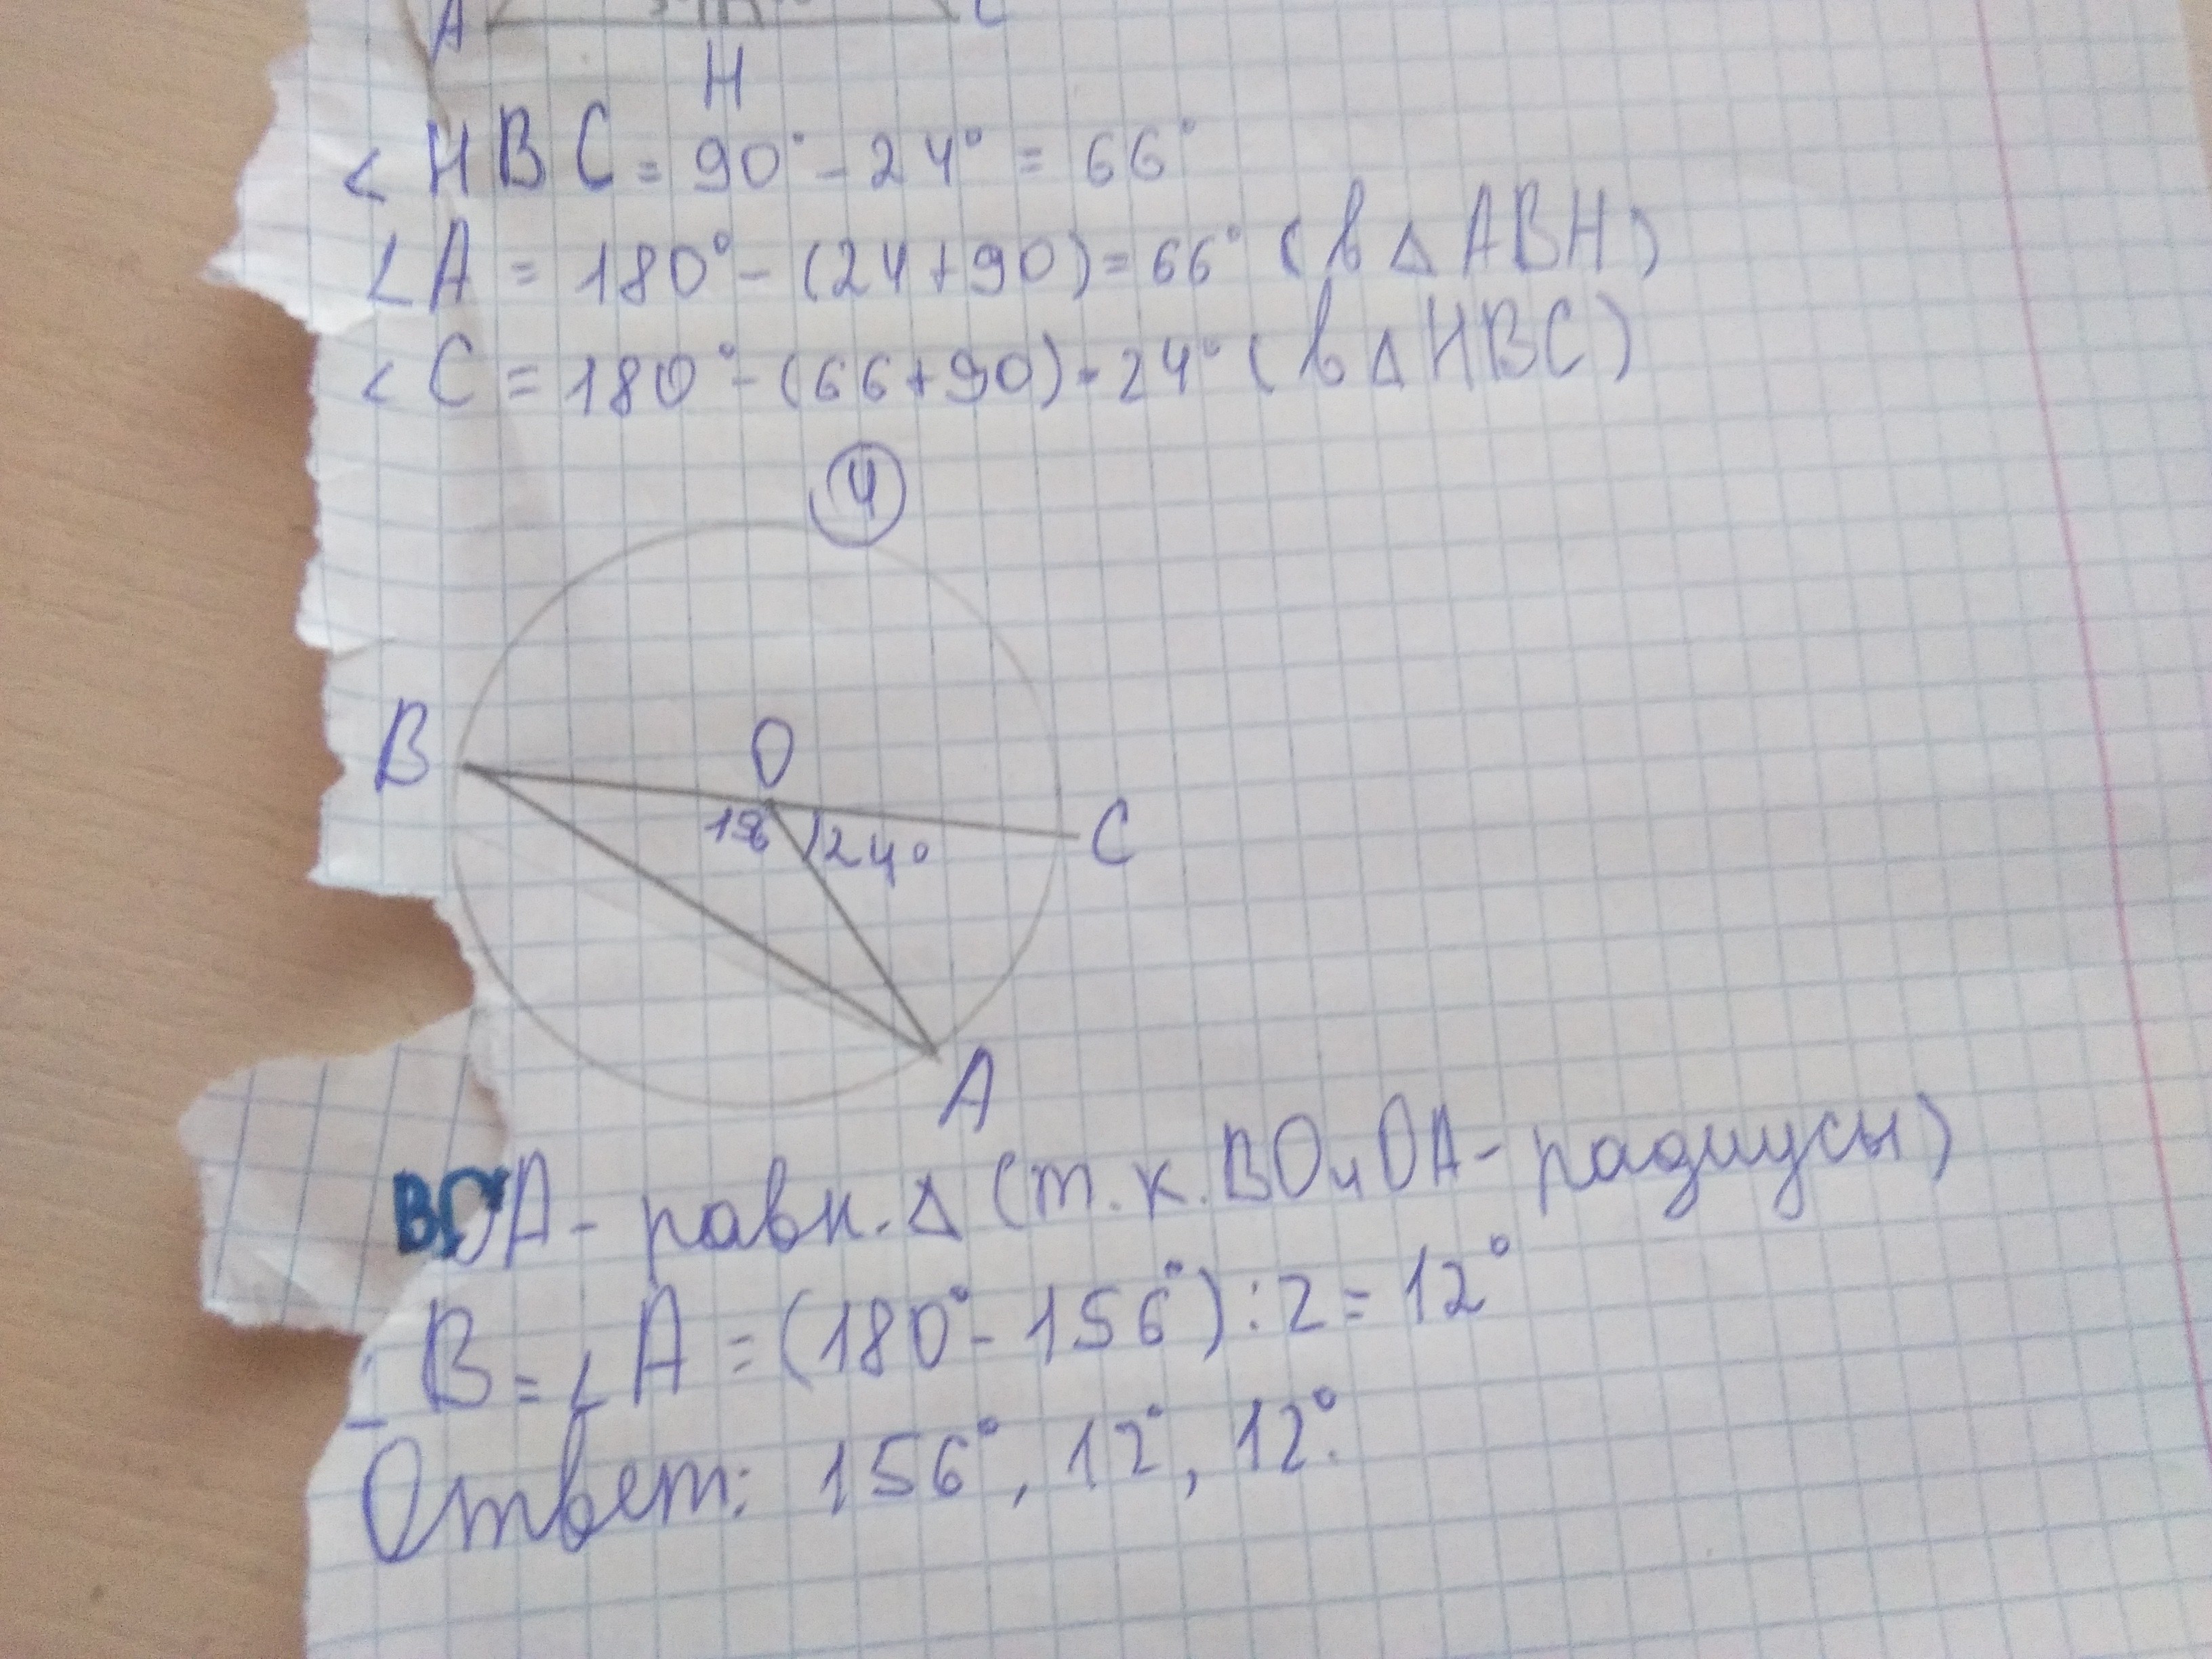 A
C
H
< HBC = 90° - 24° = 66°
∠A = 180° - (24+90) = 66° (в △ ABH)
< C = 180° - (66+90) = 24° (в △ HBC)
4
B
O
24°
C
A
BOA - равн. △ (т.к. BO и OA - радиусы)
B = ∠A = (180° - 156°) : 2 = 12°
Ответ: 156°, 12°, 12°.